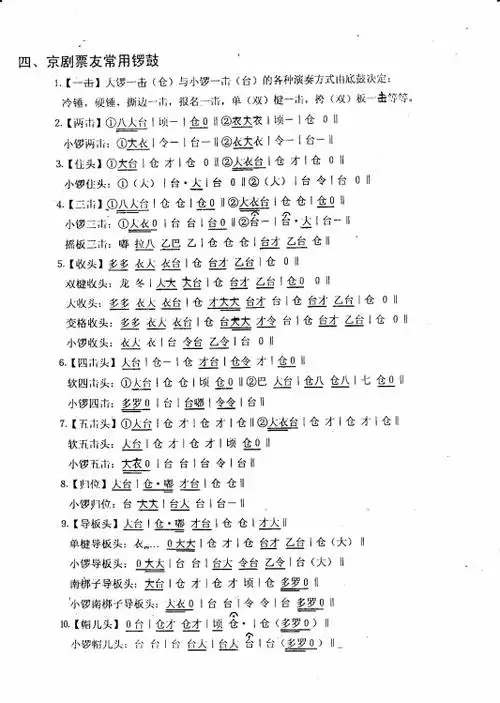 四、京剧票友常用锣鼓
1.【一击】大锣一击（仓）与小锣一击（台）的各种演奏方式由底鼓决定：
冷锤，硬锤，撕边一击，报名一击，单（双）楗一击，挎（双）板一击等等。
2.【两击】①八大台|顷一|仓 0‖②衣大衣|顷一|仓 0‖
小锣两击：①大衣|令一|台一‖②大衣|令一|台一‖
3.【住头】①大台|仓 才|仓 0‖②大衣台|仓 才|仓 0‖
小锣住头：①（大）|台·大|台 0‖②（大）|台 令|台 0‖
4.【三击】①八大台|仓 仓|仓0‖②大衣台|仓 仓|仓0‖
小锣三击：①大衣0|台 台|台0‖②台一|台·大|台一‖
摇板三击：嘟 拉八 乙巴 乙|仓 仓 仓|台才 乙台|仓‖
5.【收头】多多 衣大 衣台|仓 台才 乙台|仓‖
双楗收头：龙 冬|大大 大台|仓 才 乙台|仓0‖
大收头：多多 衣大 衣台|仓 才大大 才台|才 台|仓 台才 乙台|仓‖
变格收头：多多 衣大 衣台|仓 台大大 才令 台|仓 台才 乙台|仓‖
小锣收头：衣大 衣|台 令台 乙令|台 0‖
6.【四击头】大台|仓一|仓 才台|仓令 才|仓0‖
软四击头：①大台|仓 仓|顷 仓0‖②巴 大台|仓八 仓八|七 仓0‖
小锣四击：多罗0|台|台嘟|令令|台‖
7.【五击头】①大台|仓 才|仓 才|仓‖②大衣台|仓 才|仓 才|仓‖
软五击头：大台|仓 才|仓 才|顷 仓0‖
小锣五击：大衣0|台 台|台 令|台‖
8.【归位】大台|仓·嘟 才台|仓‖
小锣归位：台 大大|台大 台|台一‖
9.【导板头】大台|仓·嘟 才台|仓 仓|才大‖
单楗导板头：衣…… 0大大|仓 才|仓 台才 乙台|仓（大）‖
小锣导板头：0大大|台 台|台大 令台 乙令|台（大）‖
南梆子导板头：大台|仓 才|仓 才 顷|仓 多罗0‖
小锣南梆子导板头：大衣0|台 台|令 令|台 多罗0‖
10.【帽儿头】0台|仓才 仓才|顷 仓·|仓（多罗0）‖
小锣帽儿头：台 台|台 台大|台大 台|台（多罗0）‖